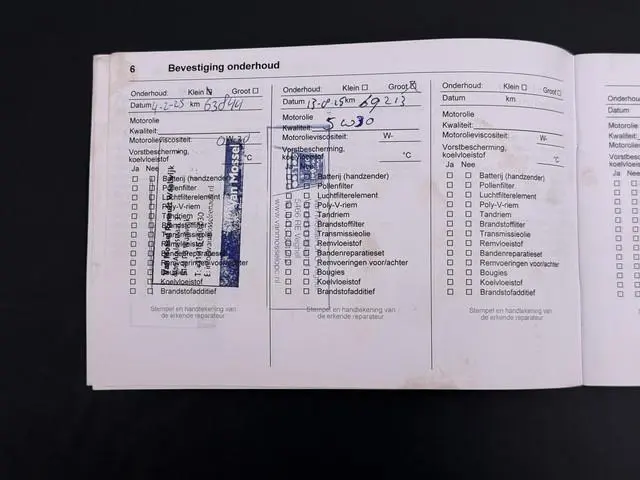 6 Bevestiging onderhoud
Onderhoud: Klein Groot
Datum 4-2-25 km 63844
Motorolie
Kwaliteit:
Motorolieviscositeit: 0W30
Vorstbescherming,
koelvloeistof °C
Ja Nee
Batterij (handzender)
Pollenfilter
Luchtfilterelement
Poly-V-riem
Tandriem
Brandstoffilter
Transmissieolie
Remvloeistof
Bandenreparatieset
Remvoeringen voor/achter
Bougies
Koelvloeistof
Brandstofadditief
Van Mossel
Stempel en handtekening van
de erkende reparateur
Onderhoud: Klein Groot
Datum 13-8-25 km 69213
Motorolie
Kwaliteit: 5W30
Motorolieviscositeit: W-
Vorstbescherming,
koelvloeistof °C
Ja Nee
Batterij (handzender)
Pollenfilter
Luchtfilterelement
Poly-V-riem
Tandriem
Brandstoffilter
Transmissieolie
Remvloeistof
Bandenreparatieset
Remvoeringen voor/achter
Bougies
Koelvloeistof
Brandstofadditief
Veghel
Stempel en handtekening van
de erkende reparateur
Onderhoud: Klein Groot
Datum km
Motorolie
Kwaliteit:
Motorolieviscositeit: W-
Vorstbescherming,
koelvloeistof °C
Ja Nee
Batterij (handzender)
Pollenfilter
Luchtfilterelement
Poly-V-riem
Tandriem
Brandstoffilter
Transmissieolie
Remvloeistof
Bandenreparatieset
Remvoeringen voor/achter
Bougies
Koelvloeistof
Brandstofadditief
Stempel en handtekening van
de erkende reparateur